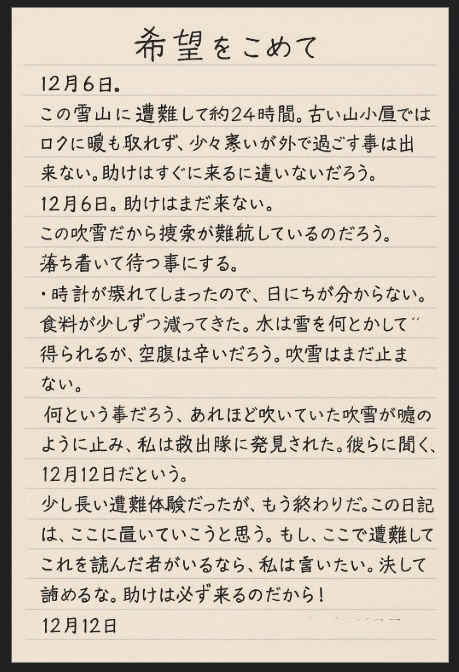 希望をこめて
12月6日。
この雪山に遭難して約24時間。古い山小屋では
ロクに暖も取れず、少々寒いが外で過ごす事は出
来ない。助けはすぐに来るに違いないだろう。
12月6日。助けはまだ来ない。
この吹雪だから捜索が難航しているのだろう。
落ち着いて待つ事にする。
・時計が壊れてしまったので、日にちが分からない。
食料が少しずつ減ってきた。水は雪を何とかして
得られるが、空腹は辛いだろう。吹雪はまだ止ま
ない。
何という事だろう、あれほど吹いていた吹雪が嘘の
ように止み、私は救出隊に発見された。彼らに聞く、
12月12日だという。
少し長い遭難体験だったが、もう終わりだ。この日記
は、ここに置いていこうと思う。もし、ここで遭難して
これを読んだ者がいるなら、私は言いたい。決して
諦めるな。助けは必ず来るのだから！
12月12日